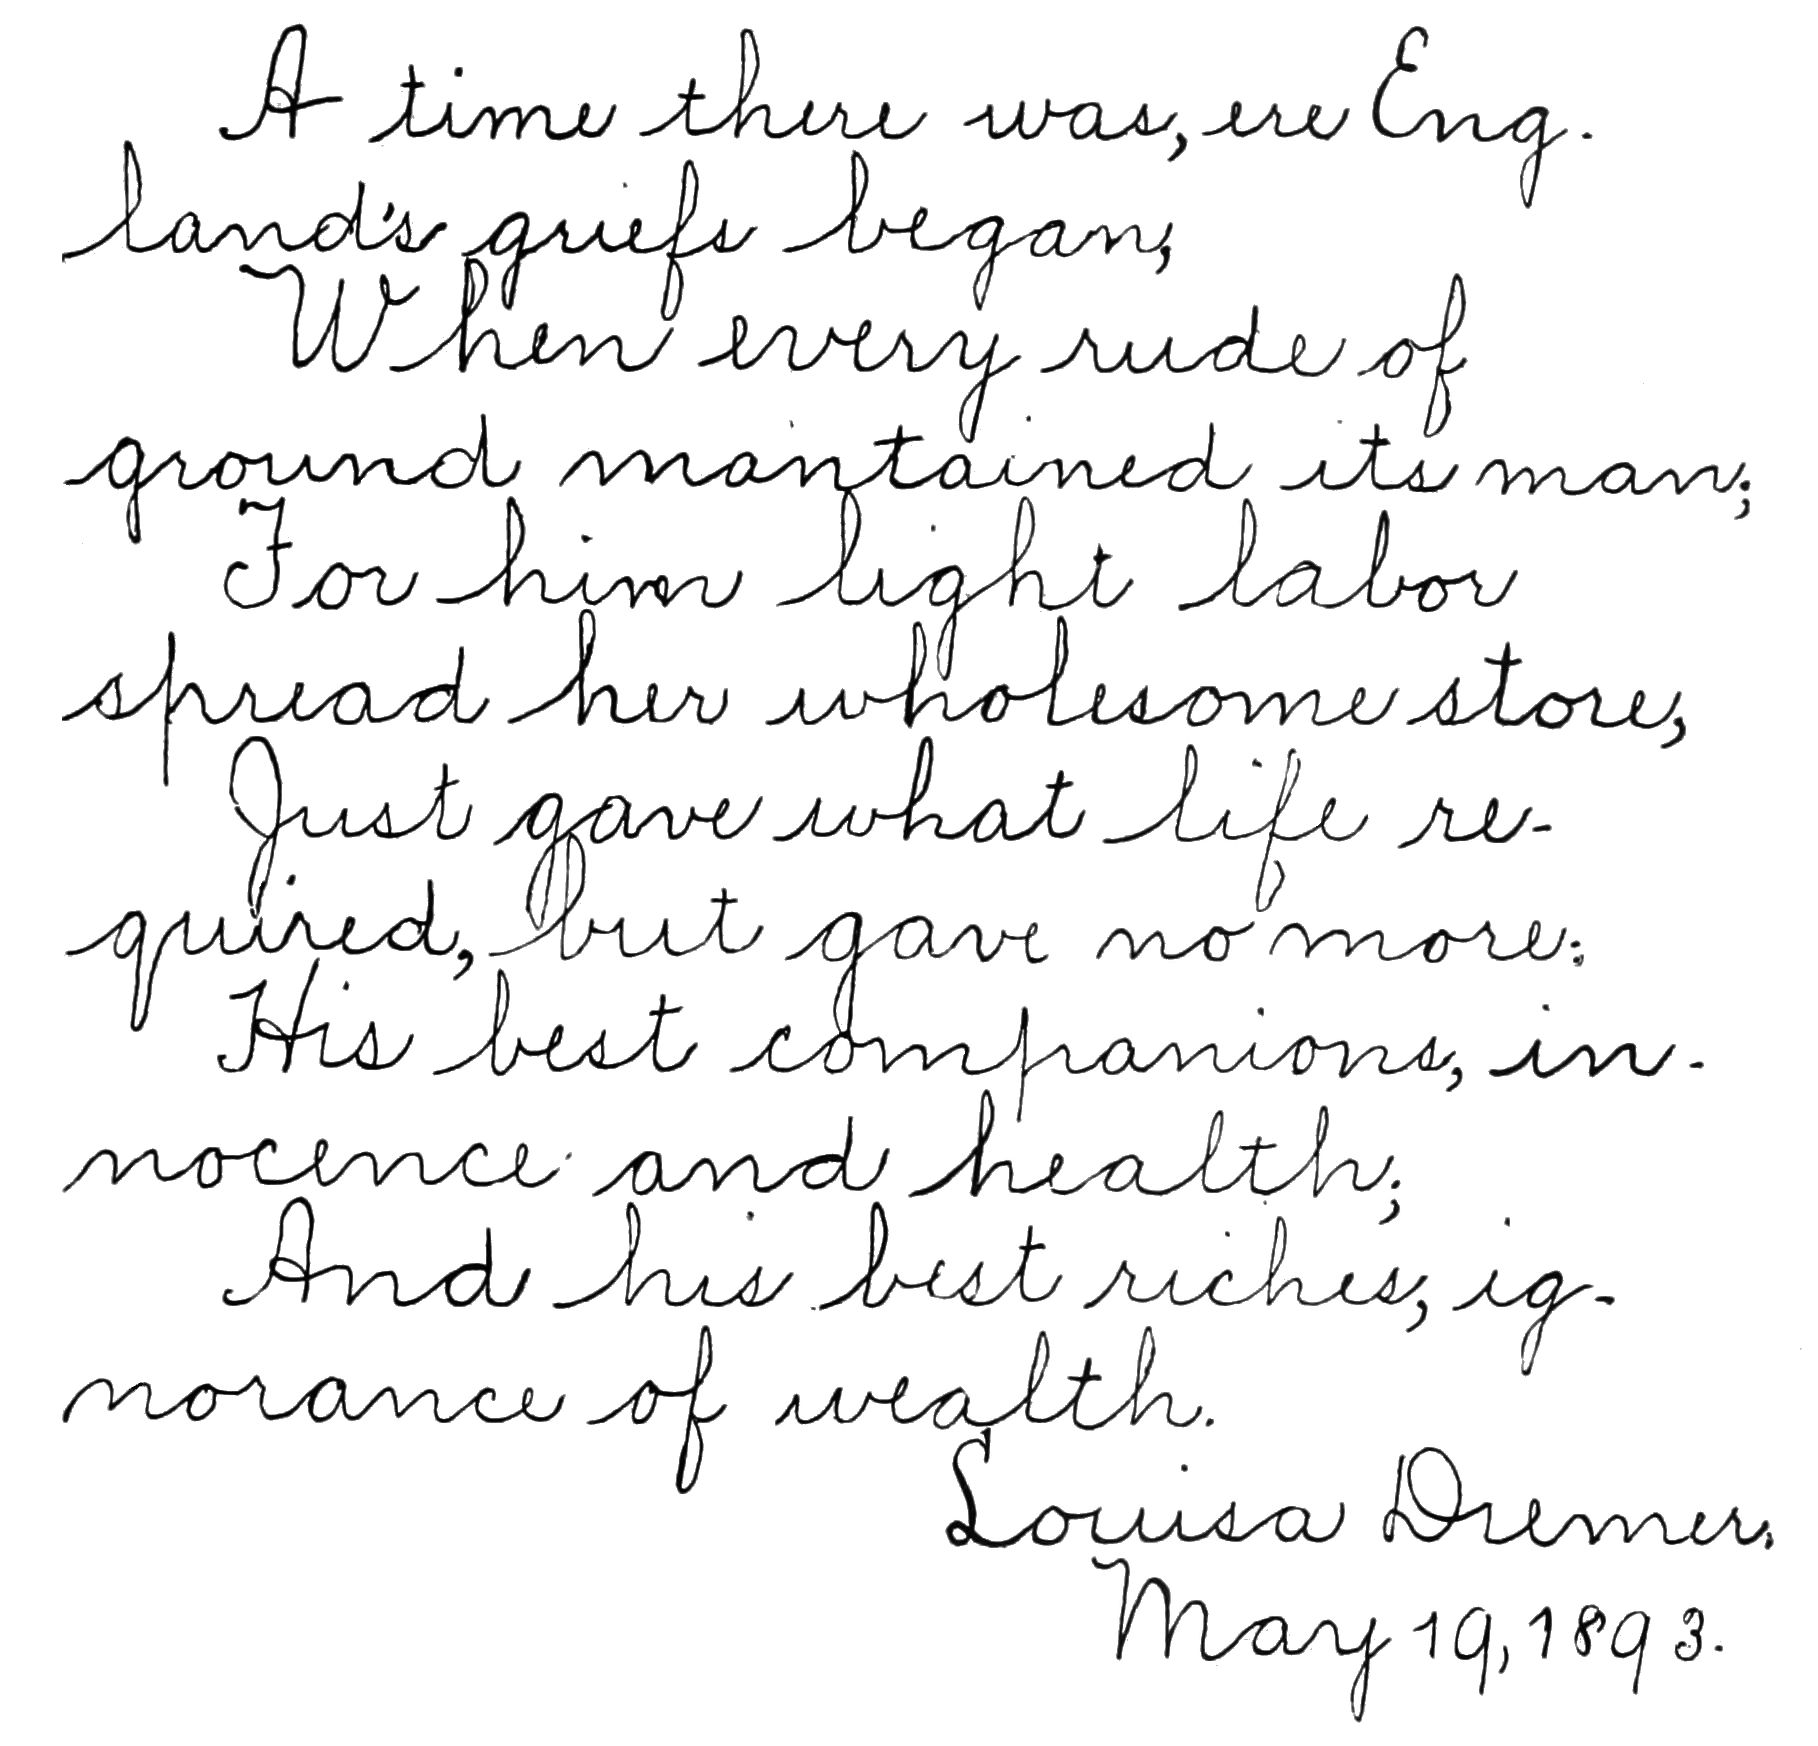 A time there was, ere Eng-
land's griefs began,
When every rude of
ground maintained its man;
For him light labor
spread her wholesome store,
Just gave what life re-
quired, but gave no more:
His best companions, in-
nocence and health;
And his best riches, ig-
norance of wealth.
Louisa Dremer.
May 19, 1893.